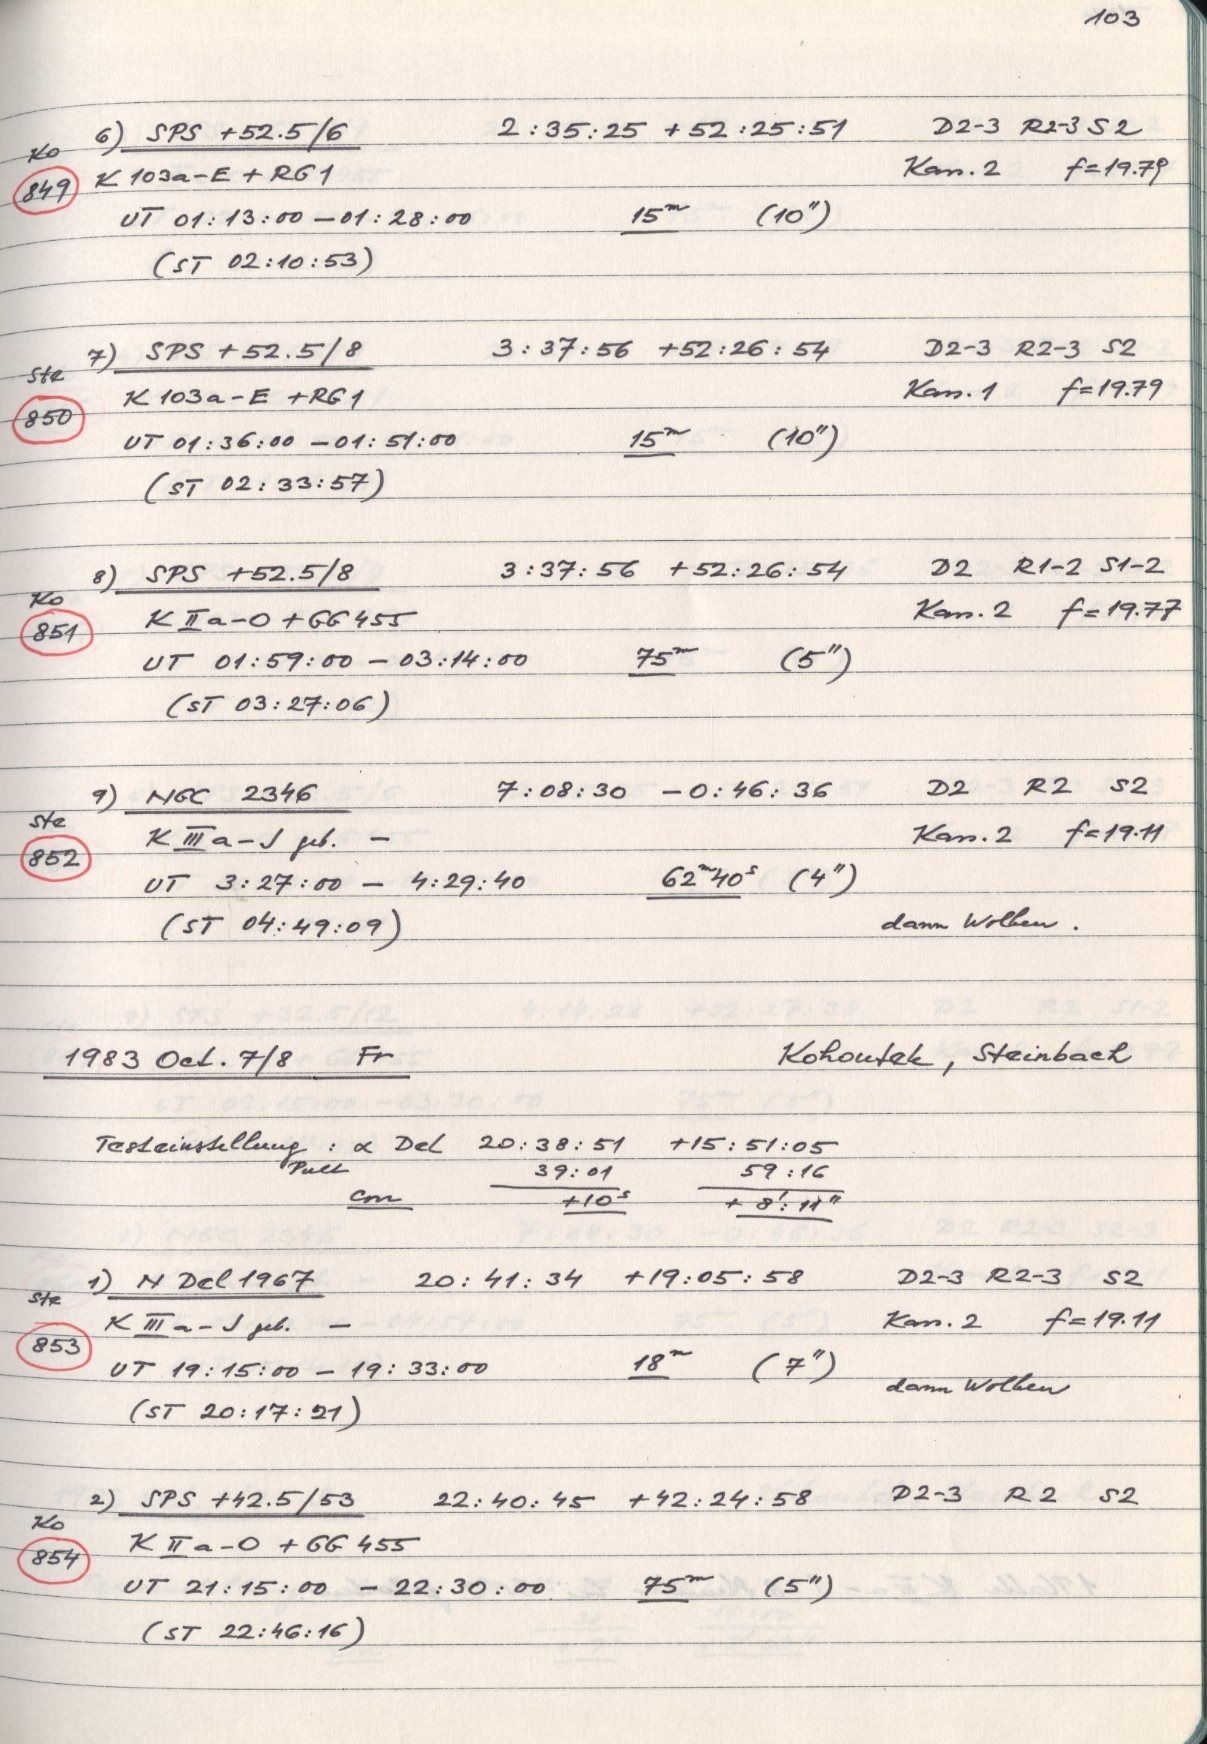 103
6) SPS +52.5/6 2:35:25 +52:25:51 D2-3 R2-3 S2
Ko
849 K 103a-E + RG1 Kass. 2 f=19.79
UT 01:13:00 – 01:28:00 15ᵐ (10")
(ST 02:10:53)
7) SPS +52.5/8 3:37:56 +52:26:54 D2-3 R2-3 S2
Ste
850 K 103a-E + RG1 Kass. 1 f=19.79
UT 01:36:00 – 01:51:00 15ᵐ (10")
(ST 02:33:57)
8) SPS +52.5/8 3:37:56 +52:26:54 D2 R1-2 S1-2
Ko
851 K IIa-O + GG455 Kass. 2 f=19.77
UT 01:59:00 – 03:14:00 75ᵐ (5")
(ST 03:27:06)
9) NGC 2346 7:08:30 –0:46:36 D2 R2 S2
Ste
852 K IIIa-J geb. – Kass. 2 f=19.11
UT 3:27:00 – 4:29:40 62ᵐ40ˢ (4")
(ST 04:49:09) dann Wolken.
1983 Oct. 7/8 Fr Kohoutek, Steinbach
Testeinstellung: α Del 20:38:51 +15:51:05
Pult 39:01 59:16
corr +10ˢ + 8':11"
1) N Del 1967 20:41:34 +19:05:58 D2-3 R2-3 S2
Ste
853 K IIIa-J geb. – Kass. 2 f=19.11
UT 19:15:00 – 19:33:00 18ᵐ (7") dann Wolken
(ST 20:17:21)
2) SPS +42.5/53 22:40:45 +42:24:58 D2-3 R2 S2
Ko
854 K IIa-O + GG455
UT 21:15:00 – 22:30:00 75ᵐ (5")
(ST 22:46:16)